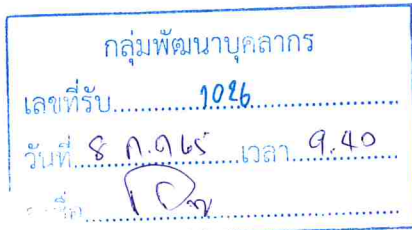 กลุ่มพัฒนาบุคลากร
เลขที่รับ 1026
วันที่ 8 ก.ค 65 เวลา 9.40